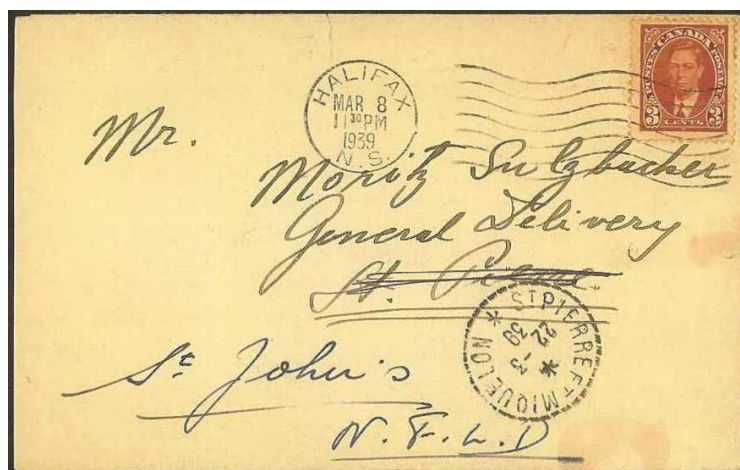 HALIFAX
MAR 8
11 30 PM
1939
N.S.
POSTES CANADA POSTAGE
3 CENTS 3
Mr.
Moritz Sulzbacher
General Delivery
St. Pierre
ST PIERRE ET MIQUELON
22 -3
39
St John's
N.F.L.D